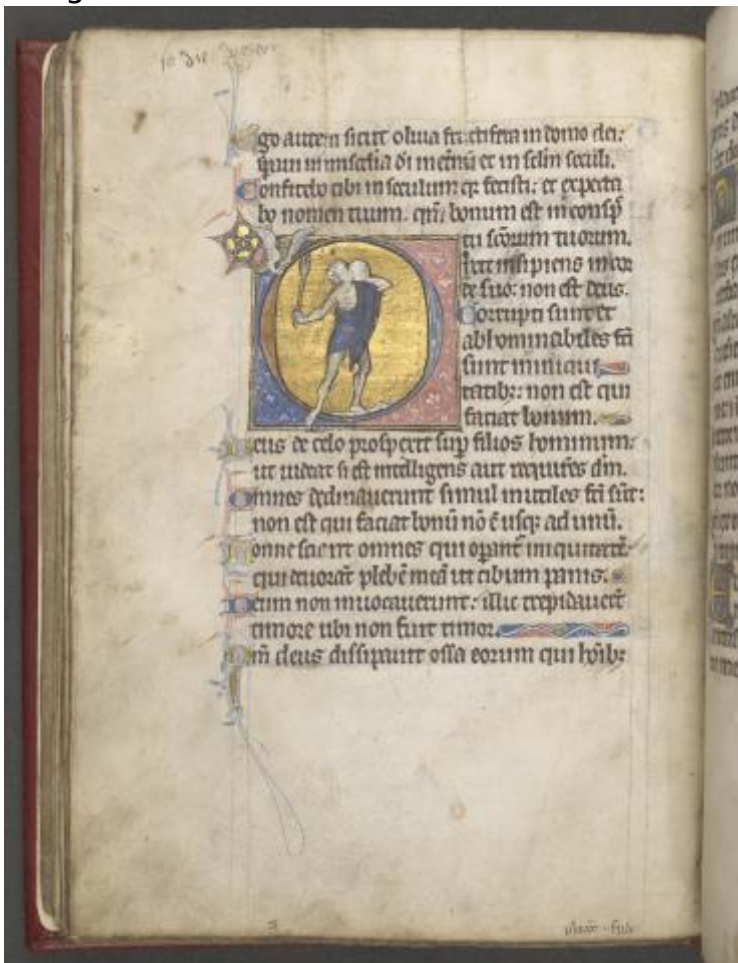 Ego autem sicut oliua fructifera in domo dei:
spaui in mi
Confitebor tibi in seculum qr fecisti: et expecta
bo nomen tuum. qm bonum est in consp
tu scorum tuorum.
Dixit insipiens in cor
de suo: non est deus.
Corrupti sunt et
abhominabiles fci
sunt in iniqui
tatibz: non est qui
faciat bonum.
Deus de celo prospexit sup filios hominum:
ut uideat si est intelligens aut requires dm.
Omnes declinauerunt simul inutiles fci sut:
non est qui faciat bonu no e usqz ad unu.
Nonne scient omnes qui opant iniquitate
qui deuorat plebe mea ut cibum panis.
Deum non inuocauerunt: illic trepidauert
timore ubi non fuit timor.
Qm deus dissipauit ossa eorum qui hoibz